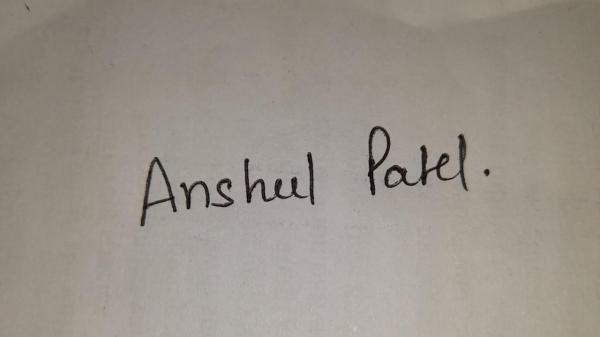 Anshul Patel.